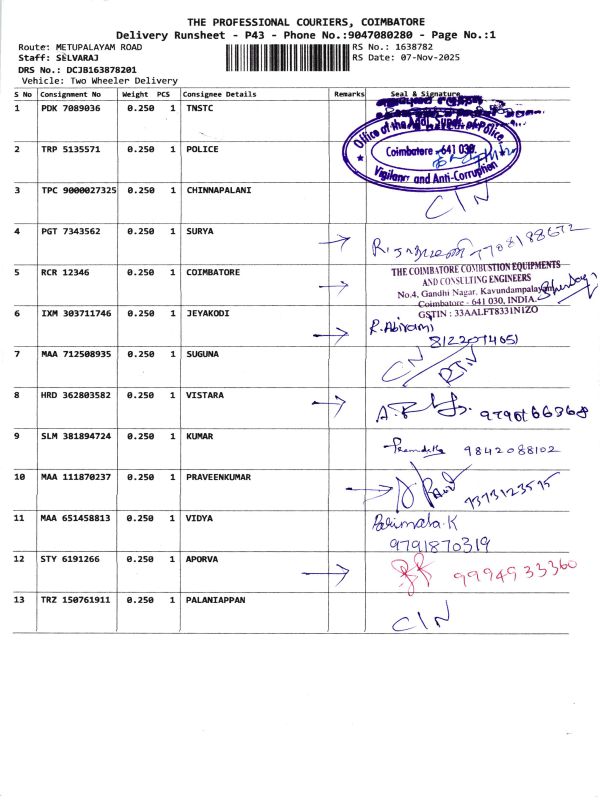 THE PROFESSIONAL COURIERS, COIMBATORE
Delivery Runsheet - P43 - Phone No.:9047080280 - Page No.:1
Route: METUPALAYAM ROAD RS No.: 1638782
Staff: SELVARAJ RS Date: 07-Nov-2025
DRS No.: DCJB163878201
Vehicle: Two Wheeler Delivery
S No Consignment No Weight PCS Consignee Details Remarks Seal & Signature
1 PDK 7089036 0.250 1 TNSTC
Office of the Addl. Supdt. of Police
2 TRP 5135571 0.250 1 POLICE Coimbatore - 641 030.
Vigilance and Anti-Corruption
3 TPC 9000027325 0.250 1 CHINNAPALANI C/N
4 PGT 7343562 0.250 1 SURYA
5 RCR 12346 0.250 1 COIMBATORE THE COIMBATORE COMBUSTION EQUIPMENTS
AND CONSULTING ENGINEERS
No.4, Gandhi Nagar, Kavundampalayam
Coimbatore - 641 030, INDIA.
GSTIN : 33AALFT8331N1ZO
6 IXM 303711746 0.250 1 JEYAKODI R. Abirami
8122074651
7 MAA 712508935 0.250 1 SUGUNA C/N RTN
8 HRD 362803582 0.250 1 VISTARA
9 SLM 381894724 0.250 1 KUMAR 9842088102
10 MAA 111870237 0.250 1 PRAVEENKUMAR 9373123515
11 MAA 651458813 0.250 1 VIDYA Parimala.K
9791870319
12 STY 6191266 0.250 1 APORVA 9994933360
13 TRZ 150761911 0.250 1 PALANIAPPAN C/N